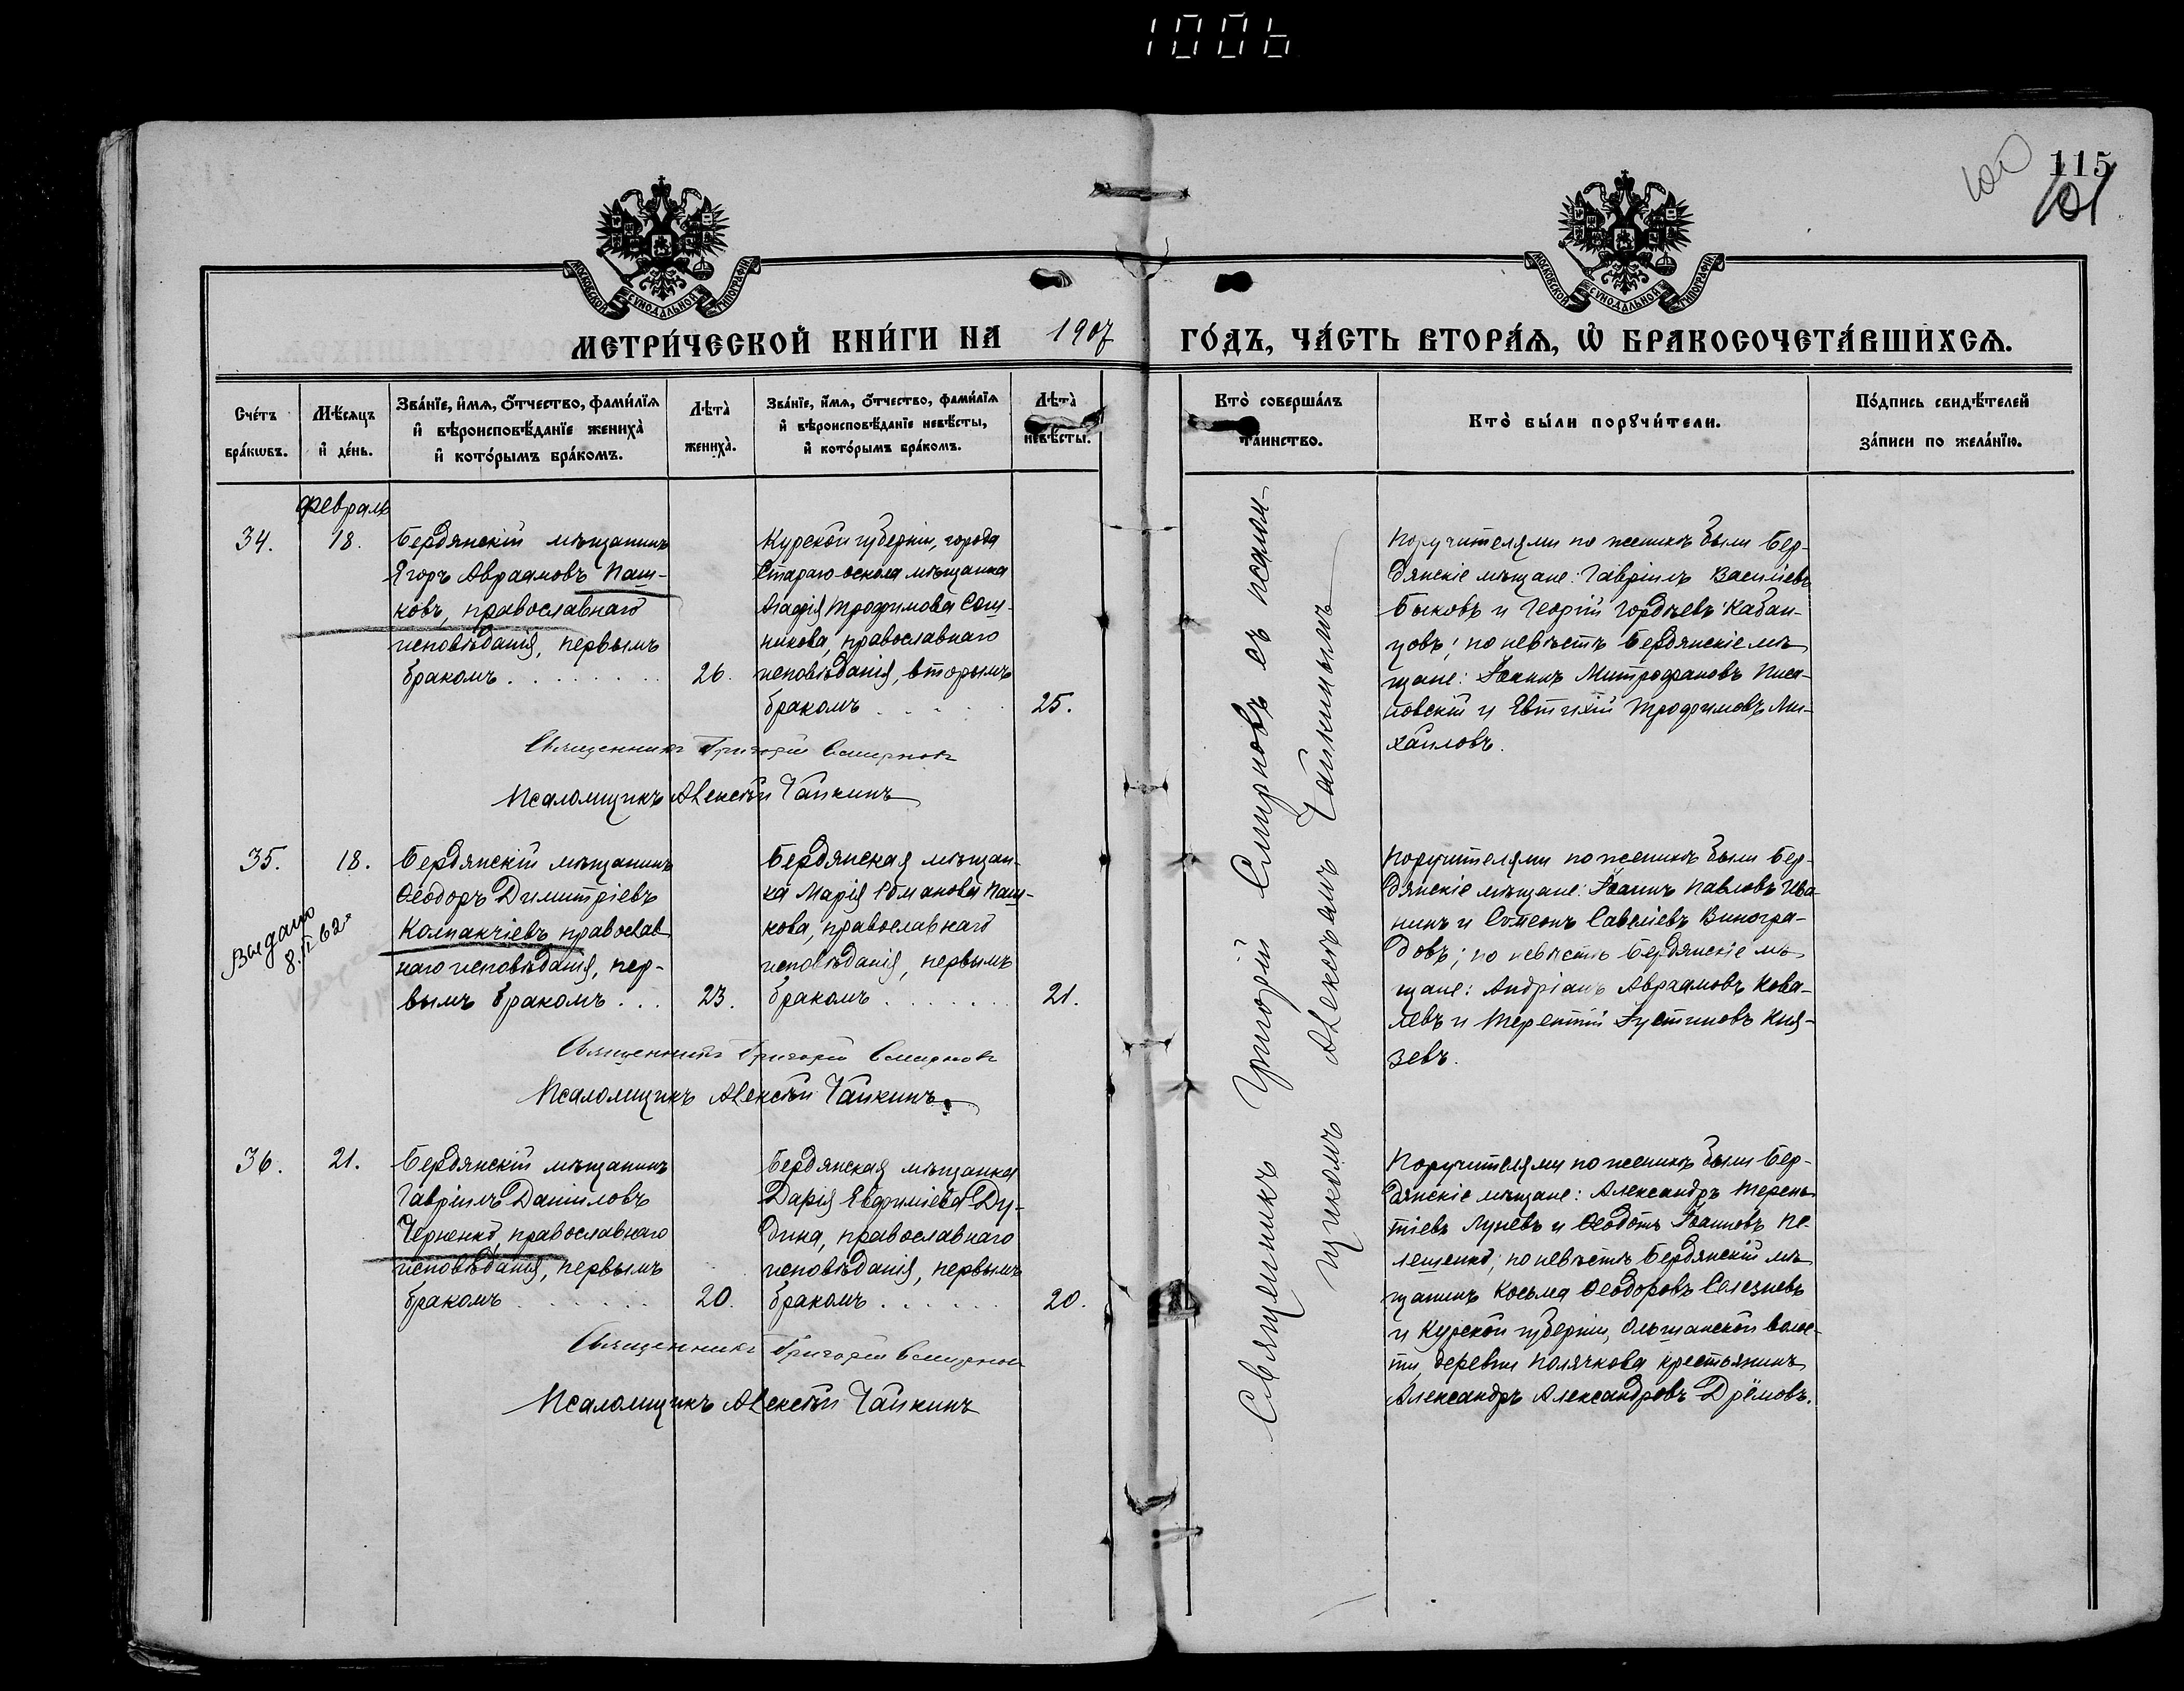 1006
115
100
101
МОСКОВСКОЙ СУНОДАЛЬНОЙ ТИПОГРАФІИ
МОСКОВСКОЙ СУНОДАЛЬНОЙ ТИПОГРАФІИ
МЕТРИ́ЧЕСКОЙ КНИ́ГИ НА 1907 ГО́ДЪ, ЧА́СТЬ ВТОРА́Ѧ, Ѿ БРАКОСОЧЕТА́ВШИХСѦ.
Сче́тъ бра́кѡвъ.
Мѣ́сяцъ и҆ де́нь.
Зва́нїе, и҆́мѧ, ѻ҆́тчество, фами́лїѧ и҆ вѣроисповѣ́данїе жениха̀ и҆ кото́рымъ бра́комъ.
Лѣта̀ жениха̀.
Зва́нїе, и҆́мѧ, ѻ҆́тчество, фами́лїѧ и҆ вѣроисповѣ́данїе невѣ́сты, и҆ кото́рымъ бра́комъ.
Лѣта̀ невѣ́сты.
Кто̀ соверша́лъ та́инство.
Кто̀ бы́ли порꙋчи́тели.
По́дпись свидѣ́телей за́писи по жела́нїю.
Февраль
34.
18.
Бердянскій мѣщанинъ
Ягоръ Авраамовъ Паш-
ковъ, православнаго
исповѣданія, первымъ
бракомъ . . . . . . . .
26.
Курской губерніи, города
Стараго-Оскола мѣщанка
Агафія Трофимова Сот-
никова, православнаго
исповѣданія, вторымъ
бракомъ . . . . .
25.
Поручителями по женихѣ были Бер-
дянскіе мѣщане: Гавріилъ Васильевъ
Быковъ и Георгій Гордѣевъ Кабан-
цовъ; по невѣстѣ Бердянскіе мѣ-
щане: Іоаннъ Митрофановъ Писа-
новскій и Евтихій Трофимовъ Ми-
хайловъ.
Священникъ Григорій Смирновъ
Псаломщикъ Алексѣй Чайкинъ
35.
18.
Выдано
8.VI 62 г
Бердянскій мѣщанинъ
Ѳеодоръ Димитріевъ
Колпакчіевъ православ
наго исповѣданія, пер-
вымъ бракомъ . . .
23.
Бердянская мѣщан-
ка Марія Романова Паш-
кова, православнаго
исповѣданія, первымъ
бракомъ . . . . . . .
21.
Поручителями по женихѣ были Бер-
дянскіе мѣщане: Іоаннъ Павловъ Ива-
нинъ и Сѵмеонъ Савеліевъ Виногра-
довъ; по невѣстѣ Бердянскіе мѣ-
щане: Андріанъ Авраамовъ Кова-
левъ и Терентій Іустиновъ Кня-
зевъ.
Священникъ Григорій Смирновъ
Псаломщикъ Алексѣй Чайкинъ.
36.
21.
Бердянскій мѣщанинъ
Гавріилъ Даніиловъ
Черненко, православнаго
исповѣданія, первымъ
бракомъ . . . . . .
20.
Бердянская мѣщанка
Дарія Евфиміева Ду-
дина, православнаго
исповѣданія, первымъ
бракомъ . . . . . .
20.
Поручителями по женихѣ были Бер-
дянскіе мѣщане: Александръ Терень-
тіевъ Луневъ и Ѳеодотъ Іоанновъ Пе-
лешенко; по невѣстѣ Бердянскій мѣ-
щанинъ Косьма Ѳеодоровъ Селезневъ
и Курской губерніи, Ольшанской волос-
ти, деревни Полячкова крестьянинъ
Александръ Александровъ Дрёмовъ.
Священникъ Григорій Смирновъ
Псаломщикъ Алексѣй Чайкинъ
Священникъ Григорій Смирновъ съ псалом-
щикомъ Алексѣемъ Чайкинымъ